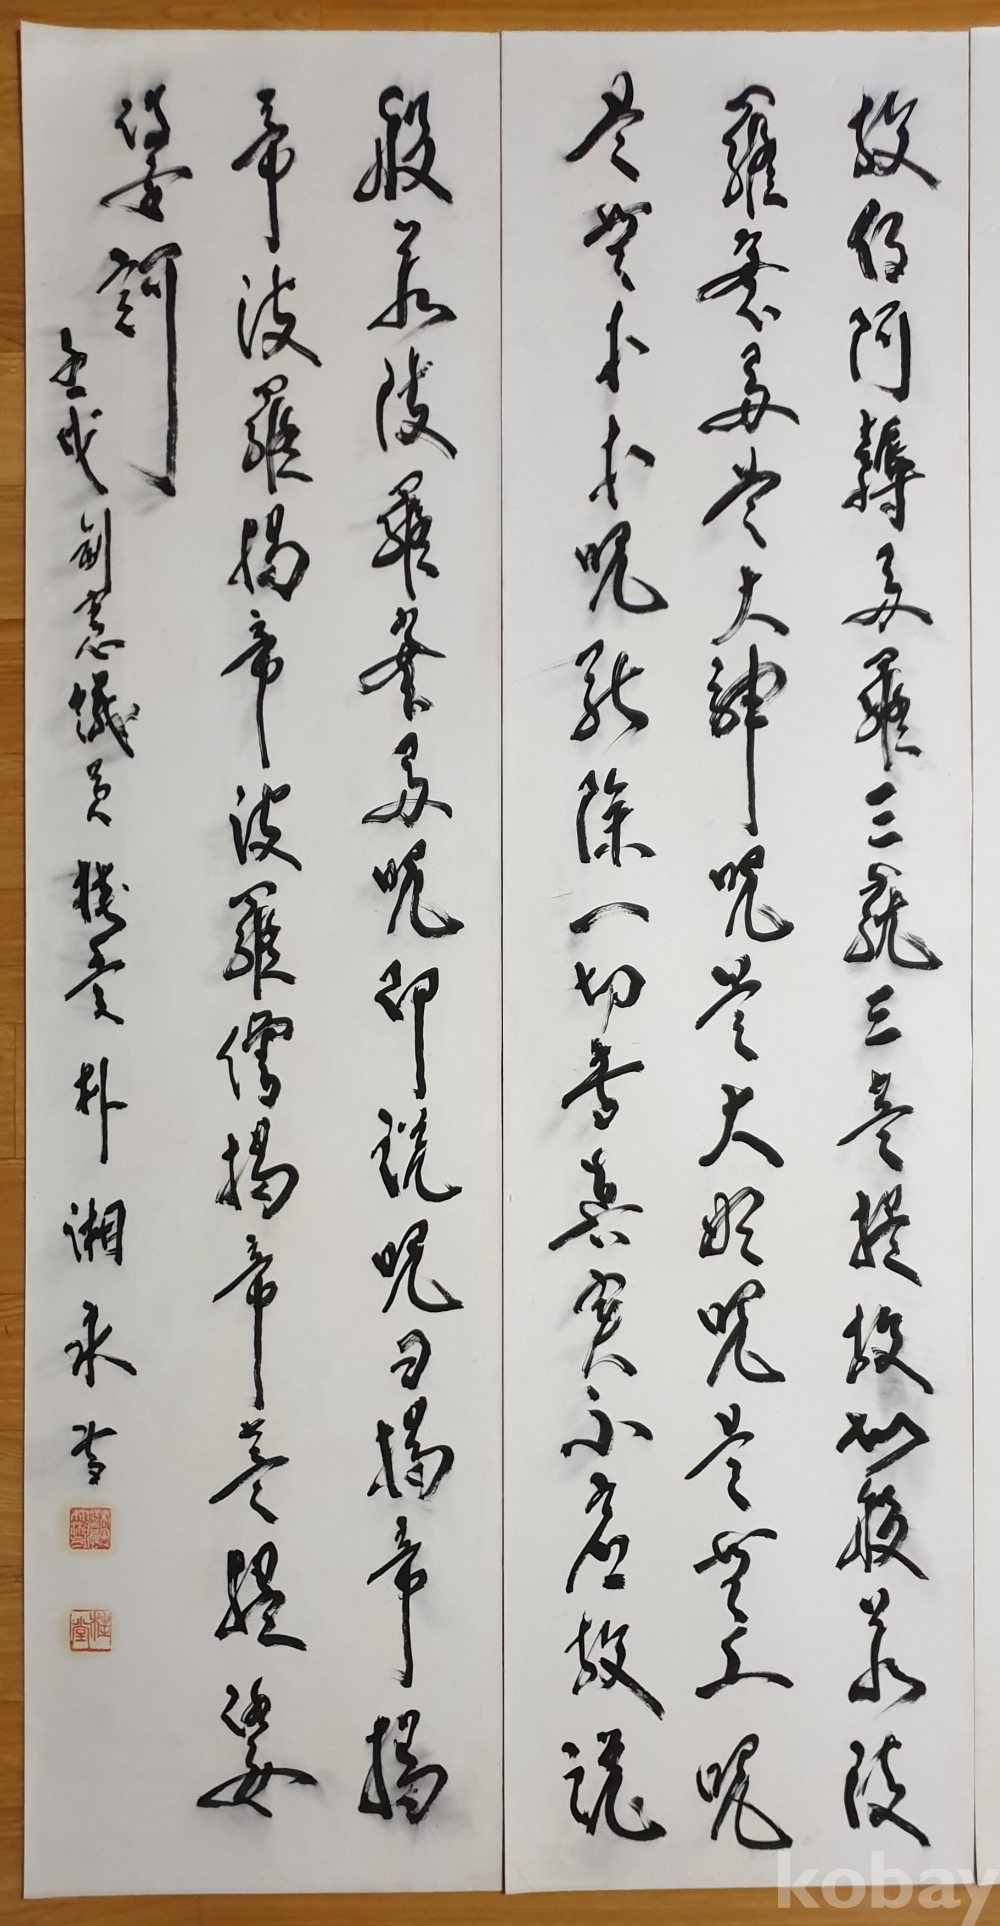 故得阿耨多羅三藐三菩提故知般若波
羅蜜多是大神呪是大明呪是無上呪
是無等等呪能除一切苦真實不虛故說
般若波羅蜜多呪即說呪曰揭帝揭
帝波羅揭帝波羅僧揭帝菩提娑
婆訶
壬戌 制憲議員 桂堂 朴湘永書
桂堂
kobay